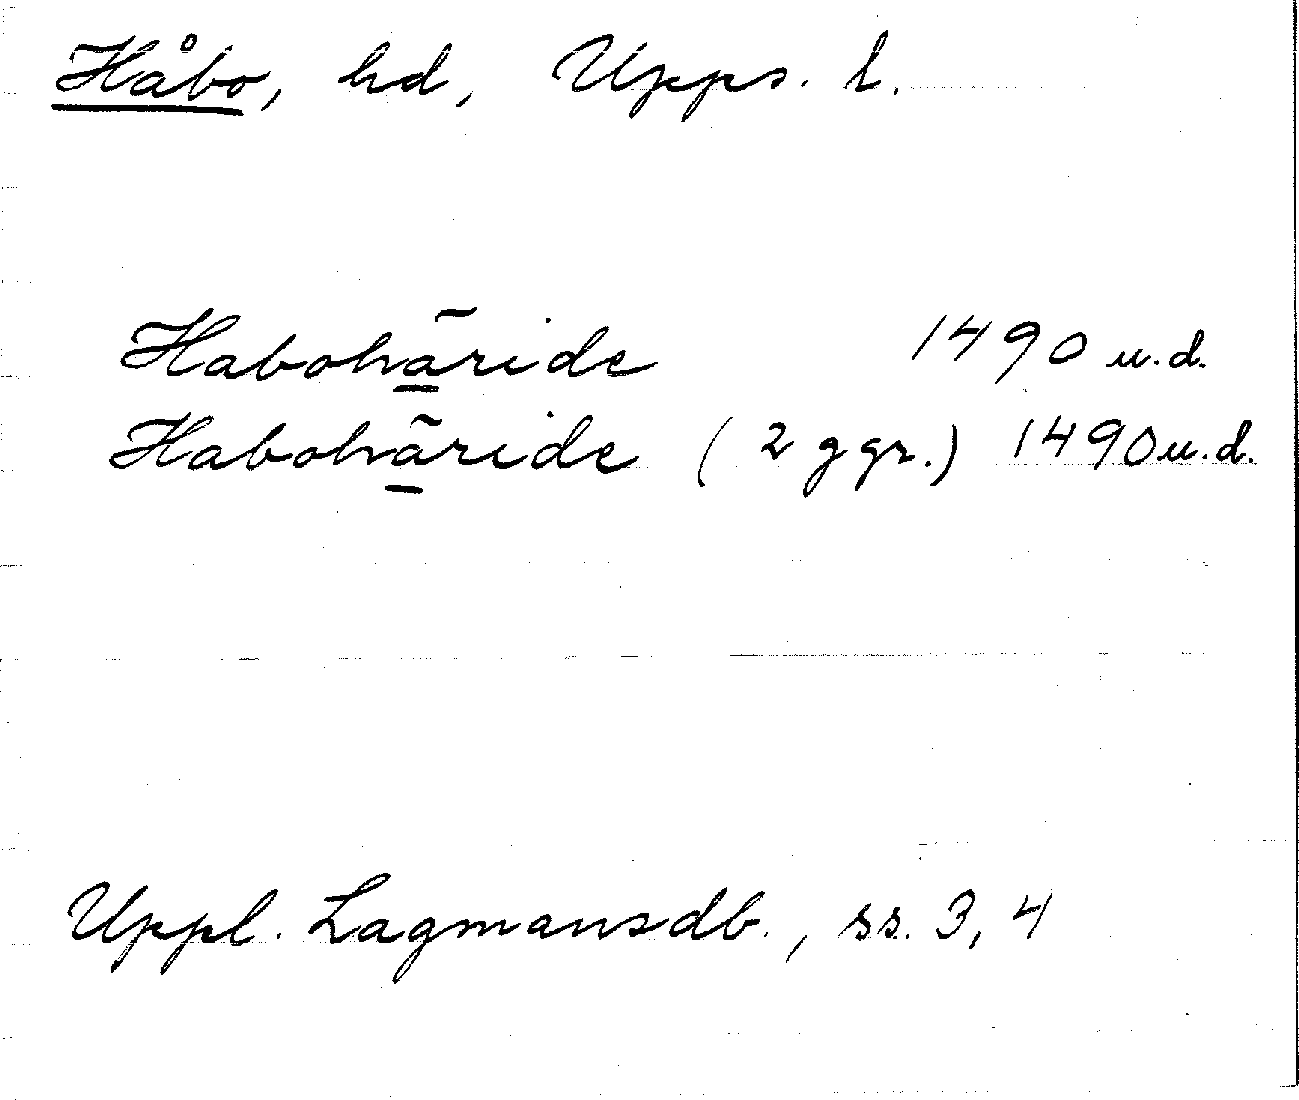 Håbo, hd, Upps. l.
Habohãride 1490 u.d.
Habohãride (2 ggr.) 1490 u.d.
Uppl. Lagmansdb., ss. 3, 4